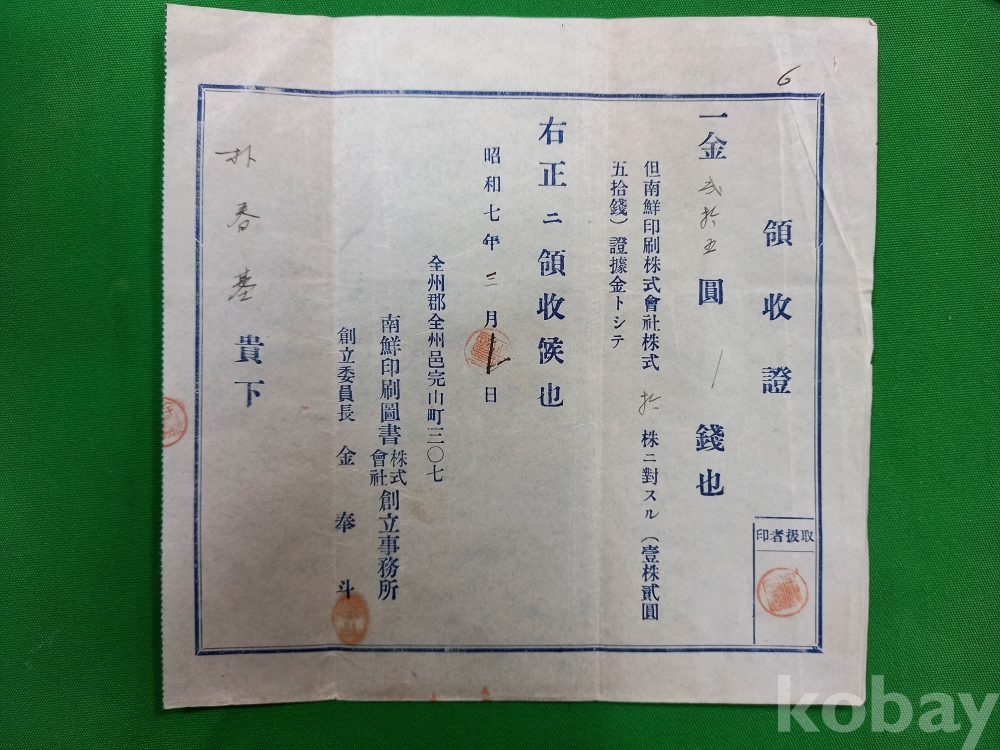 6
領收證
一金弐拾五圓 / 錢也
但南鮮印刷株式會社株式 拾 株ニ對スル(壹株貳圓
五拾錢)證據金トシテ
右正ニ領收候也
昭和七年三月 日
全州郡全州邑完山町三〇七
南鮮印刷圖書株式會社創立事務所
創立委員長 金奉斗
朴春基 貴下
取扱者印
kobay